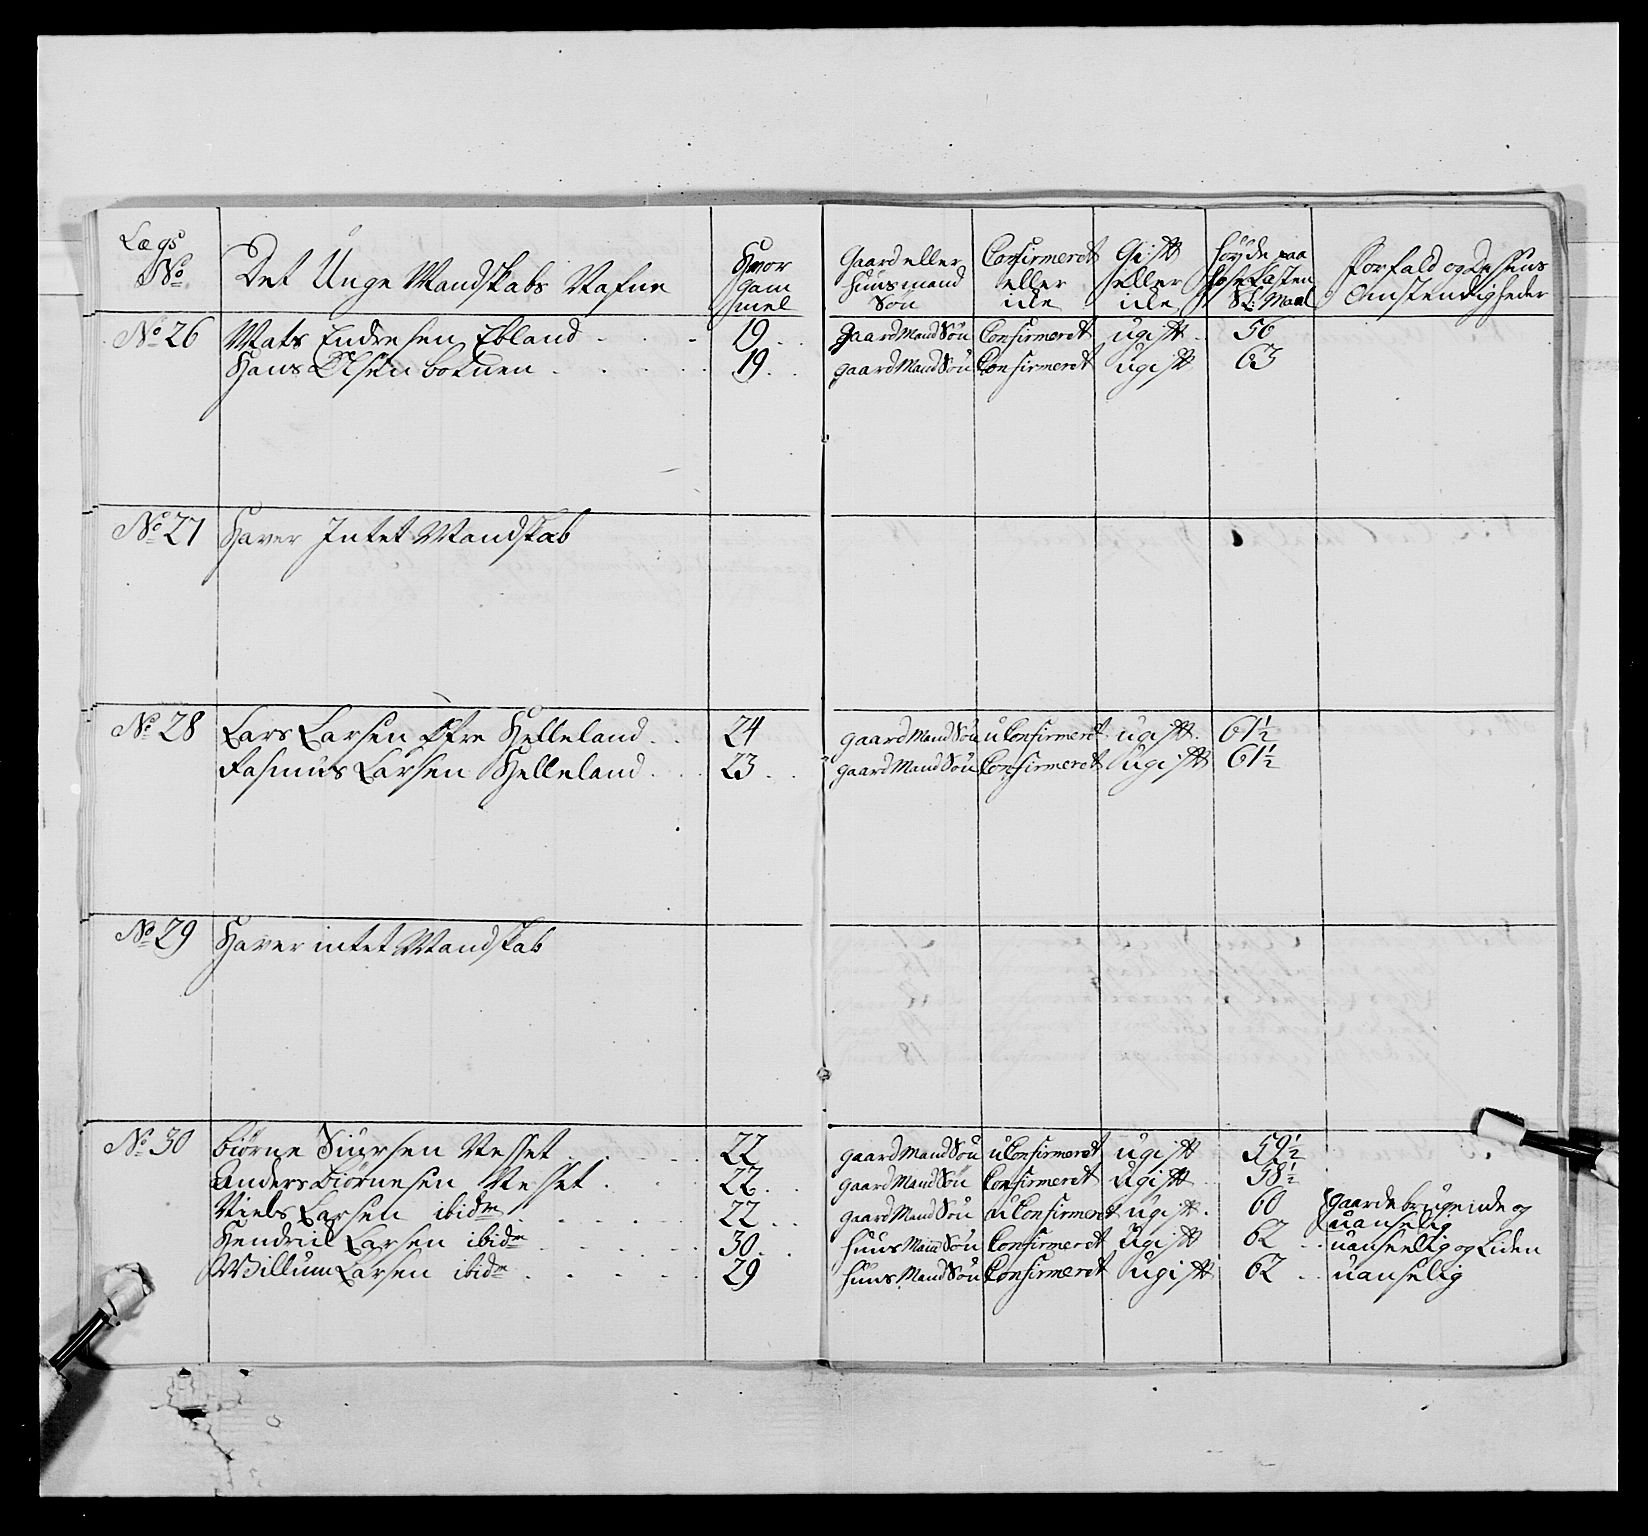 Lægs No | Det Unge Mandskabs Nafne | Hvor gam mel | Gaard eller Huusmand Søn | Confirmeret eller icke | Gift eller icke | Høyde paa Hose Låsten Sl: Maal | Forfald og Dessens Omstendigheder
No 26 | Mats Endresen Ebland | 19 | gaard Mand Søn | Confirmeret | ugift | 56
Hans Olsen botnen | 19 | gaard Mand Søn | Confirmeret | ugift | 63
No 27 | Haver Intet Mandskab
No 28 | Lars Larsen Øfre Helleland | 24 | gaard Mand Søn | uConfirmeret | ugift | 61½
Rasmus Larsen Helleland | 23 | gaard Mand Søn | Confirmeret | ugift | 61½
No 29 | Haver intet Mandskab
No 30 | biørne Siursen Nesset | 22 | gaard Mand Søn | uConfirmeret | ugift | 59½
Anders biørnesen Nesset | 22 | gaard Mand Søn | Confirmeret | ugift | 58½
Niels Larsen ibidm | 22 | gaard Mand Søn | uConfirmeret | ugift | 60 | gaardebrugende og uanselig
Hendrik Larsen ibidm | 30 | huus Mand Søn | Confirmeret | ugift | 62 | uanseelig og Liden
Willum Larsen ibidm | 29 | huus Mand Søn | Confirmeret | ugift | 62 | uanselig